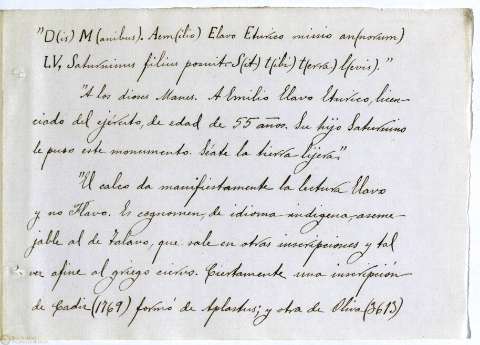 "D(is) M(anibus). Aem(ilio) Elavo Eturico missio an(norum)
LV, Saturninus filius posuit. S(it) t(ibi) t(erra) l(evis)."
"A los dioses Manes. A Emilio Elavo Eturico, licen-
ciado del ejército, de edad de 55 años. Su hijo Saturnino
le puso este monumento. Séate la tierra lijera"
"El calco da manifiestamente la lectura Elavo
y no Flavo. Es cognomen, de idioma indígena, aseme-
jable al de Talavo, que sale en otras inscripciones y tal
vez afine al griego ciervo. Ciertamente una inscripción
de Cadiz (1769) formó de Aplastus; y otra de Oliva (3613)